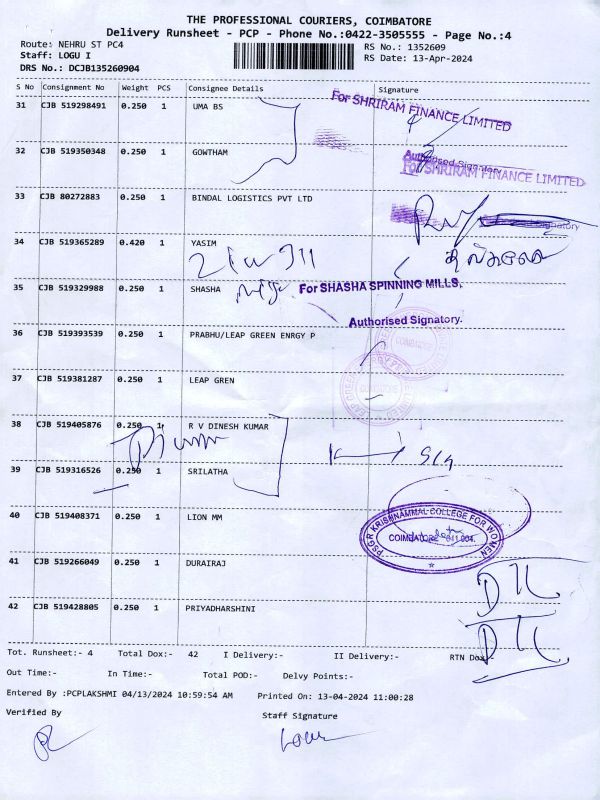 THE PROFESSIONAL COURIERS, COIMBATORE
Delivery Runsheet - PCP - Phone No.:0422-3505555 - Page No.:4
Route: NEHRU ST PC4
RS No.: 1352609
Staff: LOGU I
RS Date: 13-Apr-2024
DRS No.: DCJB135260904
S No Consignment No Weight PCS Consignee Details Signature
31 CJB 519298491 0.250 1 UMA BS
For SHRIRAM FINANCE LIMITED
Authorised Signatory
32 CJB 519350348 0.250 1 GOWTHAM
For SHRIRAM FINANCE LIMITED
33 CJB 80272883 0.250 1 BINDAL LOGISTICS PVT LTD
Signatory
34 CJB 519365289 0.420 1 YASIM
35 CJB 519329988 0.250 1 SHASHA
For SHASHA SPINNING MILLS,
Authorised Signatory.
36 CJB 519393539 0.250 1 PRABHU/LEAP GREEN ENRGY P
COIMBATORE
37 CJB 519381287 0.250 1 LEAP GREN
COIMBATORE
38 CJB 519405876 0.250 1 R V DINESH KUMAR
39 CJB 519316526 0.250 1 SRILATHA
40 CJB 519408371 0.250 1 LION MM
PSGR KRISHNAMMAL COLLEGE FOR WOMEN
COIMBATORE - 641 004.
41 CJB 519266049 0.250 1 DURAIRAJ
42 CJB 519428805 0.250 1 PRIYADHARSHINI
Tot. Runsheet:- 4 Total Dox:- 42 I Delivery:- II Delivery:- RTN Dox:-
Out Time:- In Time:- Total POD:- Delvy Points:-
Entered By :PCPLAKSHMI 04/13/2024 10:59:54 AM Printed On: 13-04-2024 11:00:28
Verified By Staff Signature